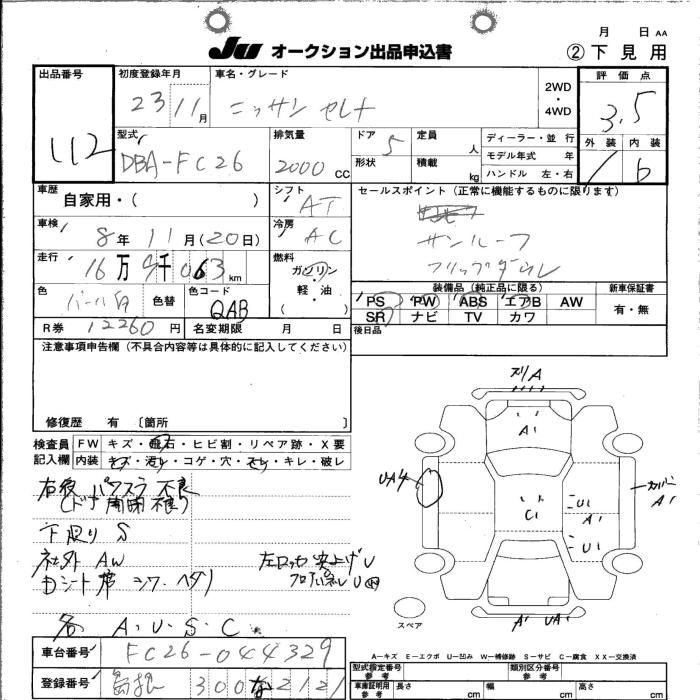 月 日 AA
JU オークション出品申込書 ②下見用
出品番号 初度登録年月 車名・グレード 2WD・4WD 評価点
112 23 11月 ニッサン セレナ 3.5
型式 排気量 ドア 定員 人 ディーラー・並行 外装 内装
DBA-FC26 2000cc 5 形状 積載 kg モデル年式 年 ハンドル 左・右 b
車歴 シフト セールスポイント(正常に機能するものに限ります)
自家用・( ) AT
車検 冷房 サンルーフ
8年11月(20日) AC フリップダウン
走行 燃料
16万 千 063km ガソリン・軽・油 ( )
装備品(純正品に限る) 新車保証書
色 色替 色コード PS PW ABS エアB AW 有・無
パール白 QAB SR ナビ TV カワ
R券 12260円 名変期限 月 日 後日品
注意事項申告欄(不具合内容等は具体的に記入してください)
修復歴 有 〔箇所 〕
検査員 FW キズ・飛石・ヒビ割・リペア跡・X要
記入欄 内装 キズ・汚レ・コゲ・穴・スレ・キレ・破レ
右後 パワスラ 不良
(ドア 開閉 不良)
下廻り S
社外 AW
Dシート席 シワ・ヘタリ
左ロッカ 突上げU
フロアパネルU
各 A・U・S・C
スリA
A
UA4
C
U1
A
カバー
A
U1
A UA
スペア
A-キズ E-エクボ U-凹み W-補修跡 S-サビ C-腐食 XX-交換済
車台番号 FC26-044329
登録番号 島根 300 な 2121
型式指定番号 参考 類別区分番号 参考
車庫証明用 参考 長さ cm 幅 cm 高さ cm